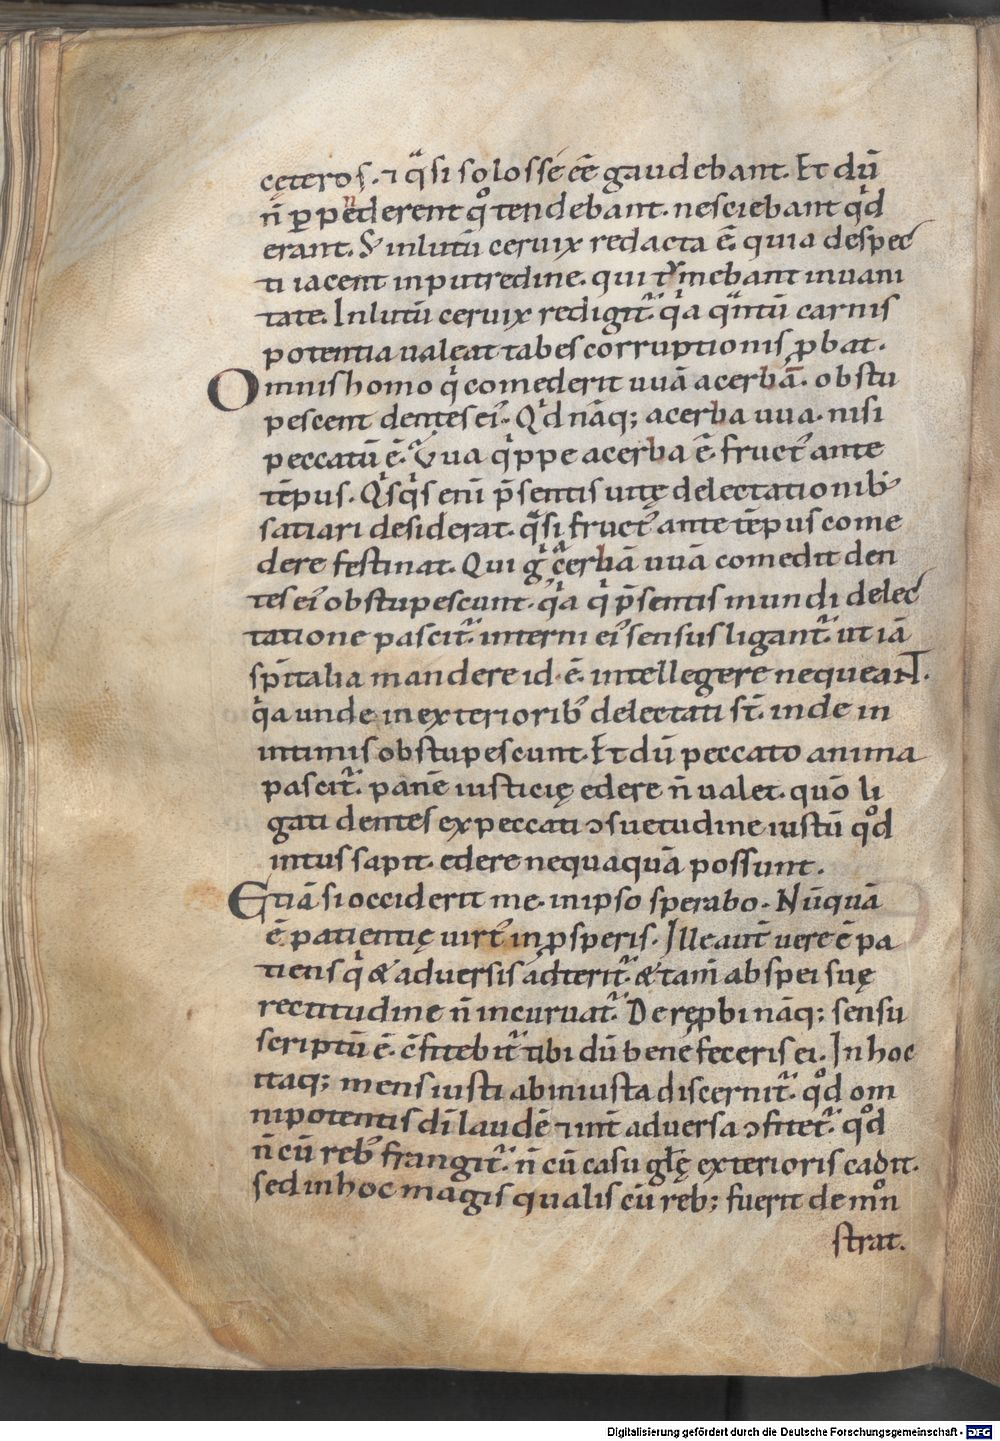 cęteros. ⁊ qͣsi solos se ēē gaudebant. Et dū
n̄ ꝑpenderent qͦ tendebant. nesciebant qͥd
erant. S; in lutū ceruix redacta ē. quia despec
ti iacent in putredine. qui tͥmebant in uani
tate. In lutū ceruix redigit᷑. qͥa qͣntū carnis
potentia ualeat tabes corruptionis ꝓbat.
Omnis homo qͥ comederit uuā acerbā. obstu
pescent dentes ei᷒. Qͥd nāq; acerba uua. nisi
peccatū ē. Vua qͥppe acerba ē. fruct᷒ ante
tēpus. Qͥsqͥs eni̅ p̄sentis uitę delectationib᷒
satiari desiderat. qͣsi fruct᷒ ante tēpus come
dere festinat. Qui gͦ acerbā uuā comedit den
tes ei᷒ obstupescunt. qͥa qͥ p̄sentis mundi delec
tatione pascit᷑. interni ei᷒ sensus ligant᷑. ut iā
sp̄italia mandere id. ē. intellegere nequeant.
qͥa unde in exteriorib᷒ delectati st̄. inde in
intimis obstupescunt. Et dū peccato anima
pascit᷑. panē iusticię edere n̄ ualet. quō li
gati dentes ex peccati ɔsuetudine iustū qͦd
intus sapit. edere nequaquā possunt.
Etiā si occiderit me. in ipso sperabo. Nūquā
ē patientię uirt᷒ in ꝓsperis. Ille aut̄ uere ē pa
tiens qͥ & aduersis adterit᷑. & tam̄ ab spei suę
rectitudine n̄ incuruat᷑. De reꝓbi nāq; sensu
scriptū ē. c̄fitebit᷑ tibi dū bene feceris ei. In hoc
itaq; mens iusti ab iniusta discernit᷑. qͦd om
nipotentis dī laudē ⁊ int̄ aduersa ɔfitet᷑. qͦd
n̄ cū reb᷒ frangit᷑. n̄ cū casu glę̄ exterioris cadit.
sed in hoc magis qualis cū reb; fuerit demōn
strat.
Digitalisierung gefördert durch die Deutsche Forschungsgemeinschaft - DFG